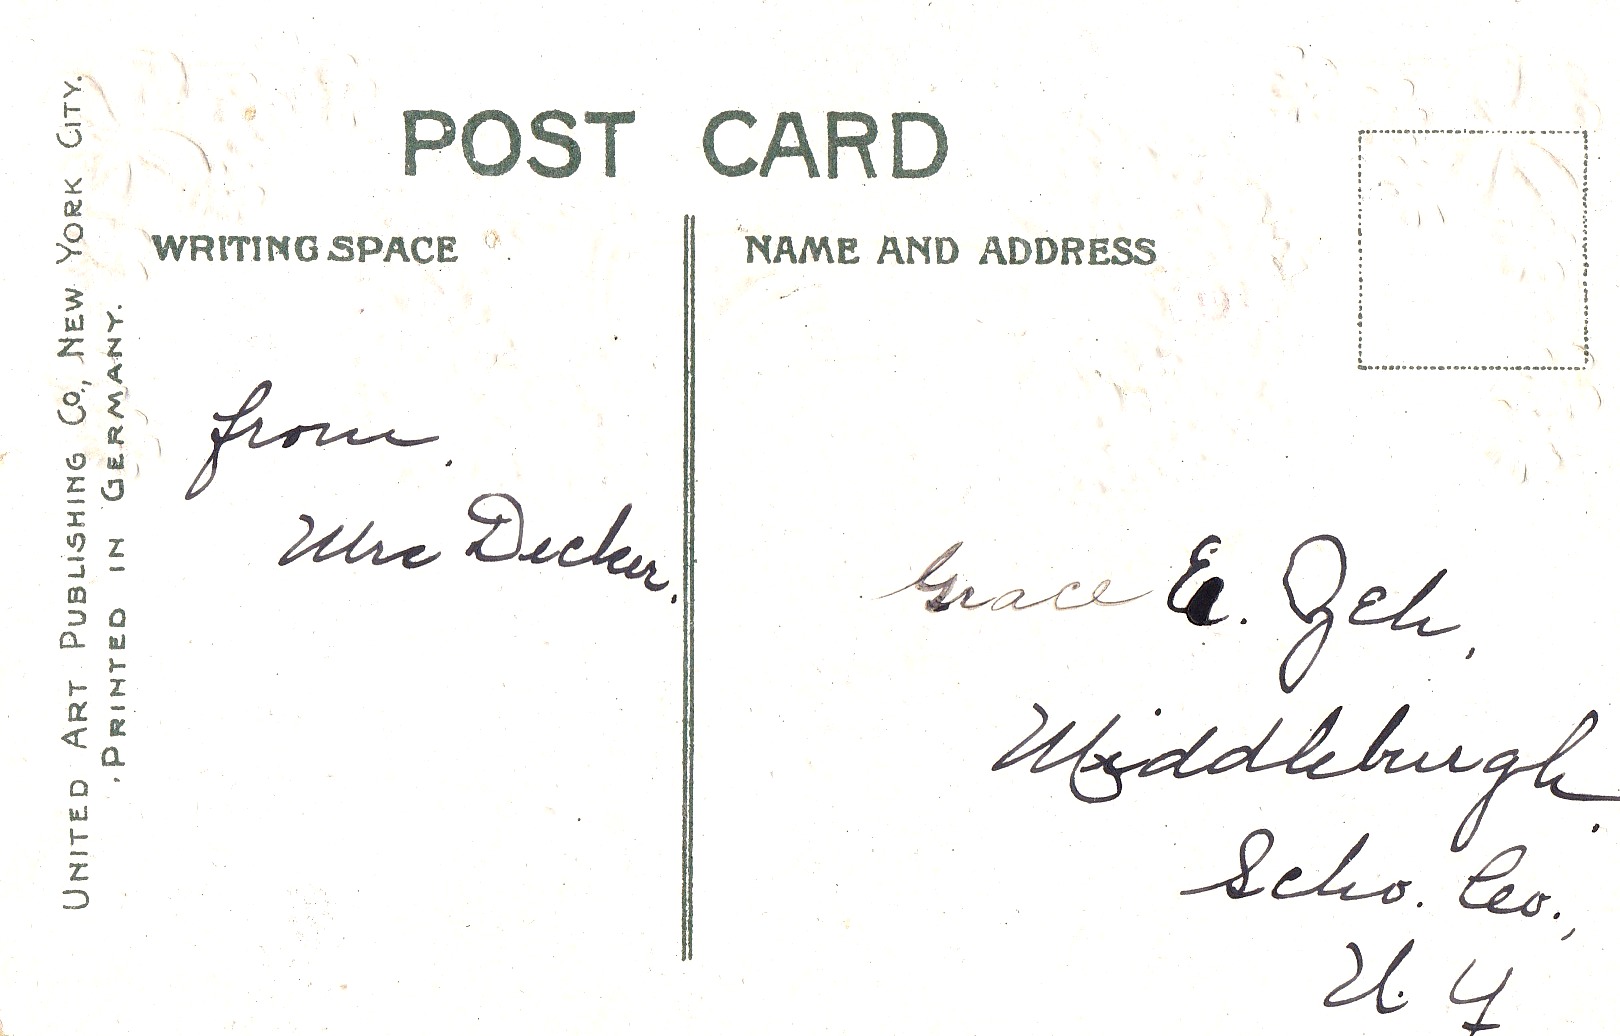 UNITED ART PUBLISHING CO., NEW YORK CITY.
PRINTED IN GERMANY.
POST CARD
WRITING SPACE
NAME AND ADDRESS
from,
Mrs Decker.
Grace E. Zeh,
Middleburgh,
Scho. Co.,
N. Y